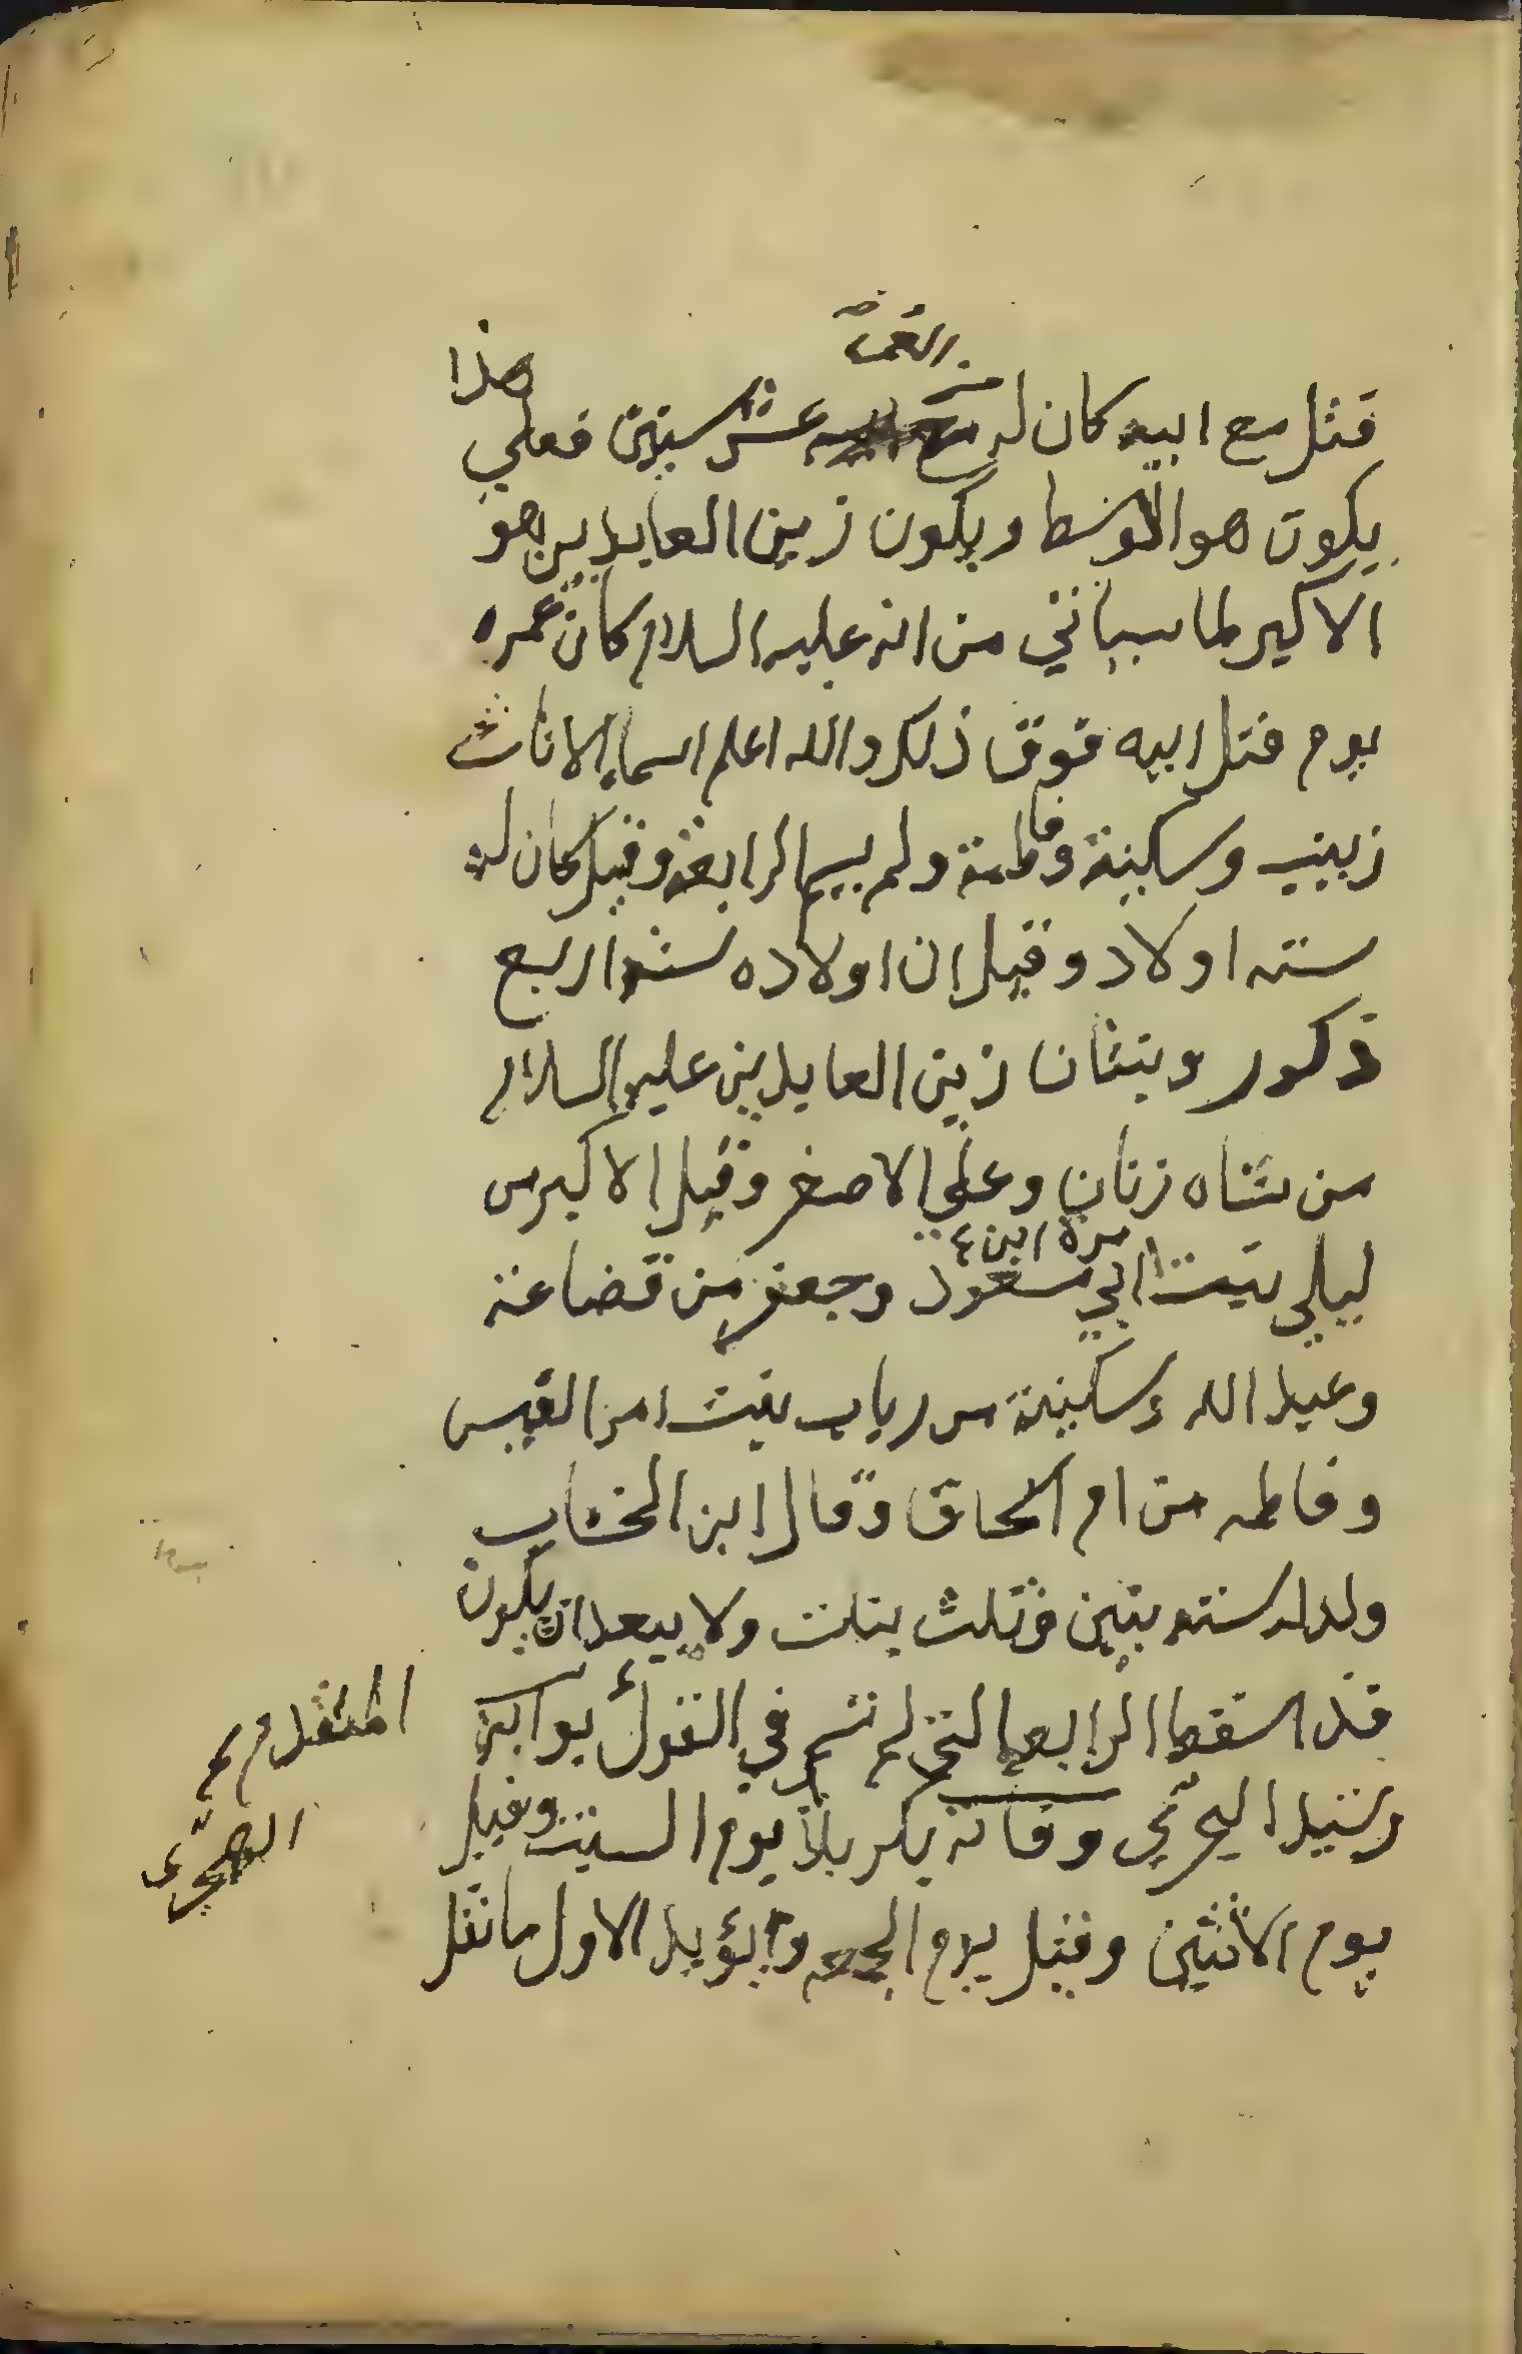 قتل مع ابيه كان له من العمر عشر سنين فعلي هذا
يكون هو الاوسط ويكون زين العابدين هو
الاكبر لما سياتي من انه عليه السلام كان عمره
يوم قتل ابيه فوق ذلك والله اعلم اسماء الاناث
زينب وسكينة وفاطمة ولم يسم الرابعة وقيل كان له
سته اولاد وقيل ان اولاده ستة اربع
ذكور وبنتان زين العابدين عليه السلام
من شاه زنان وعلي الاصغر وقيل الاكبر من
ليلي بنت ابي مرة ابن مسعود وجعفر من قضاعة
وعبد الله وسكينة من رباب بنت امرء القيس
وفاطمه من ام اسحاق وقال ابن الخشاب
ولد له سته بنين وثلث بنات ولا يبعد ان يكون
قد اسقط الرابعه التي لم تسم في القول
وفاته بكربلا يوم السبت وقيل
يوم الاثنين وقيل يوم الجمعه ويؤيد الاول ما نقل
المتقدم